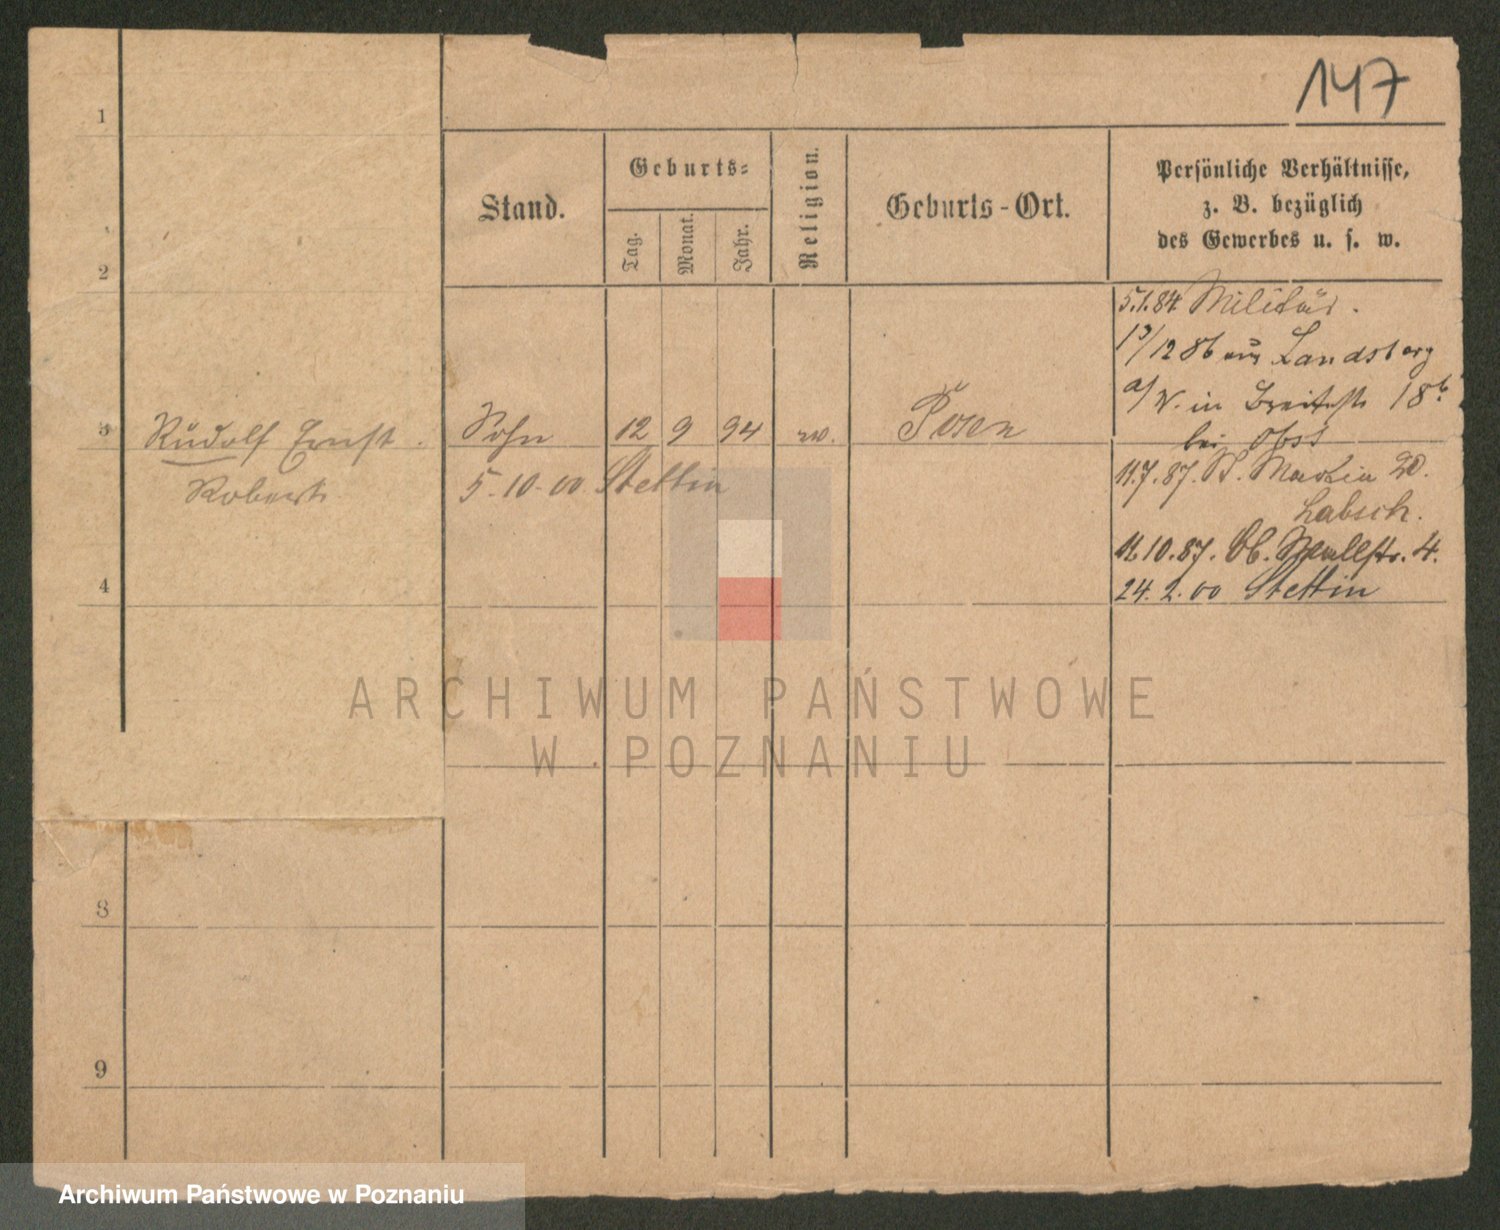 147
Stand.
Geburts-
Tag.
Monat.
Jahr.
Religion.
Geburts-Ort.
Persönliche Verhältnisse,
z. B. bezüglich
des Gewerbes u. s. w.
1
2
5.1.84 Militär.
13/12 86 aus Landsberg
a/W. in Breitestr 18b
bei Obst
3
Rudolf Ernst
Robert
Sohn
12
9
94
Posen
5.10.00 Stettin
11.7.87. St. Martin 20.
Labsch.
11.10.87. Ob. Wallstr. 4.
24.2.00 Stettin
4
8
9
ARCHIWUM PAŃSTWOWE
W POZNANIU
Archiwum Państwowe w Poznaniu